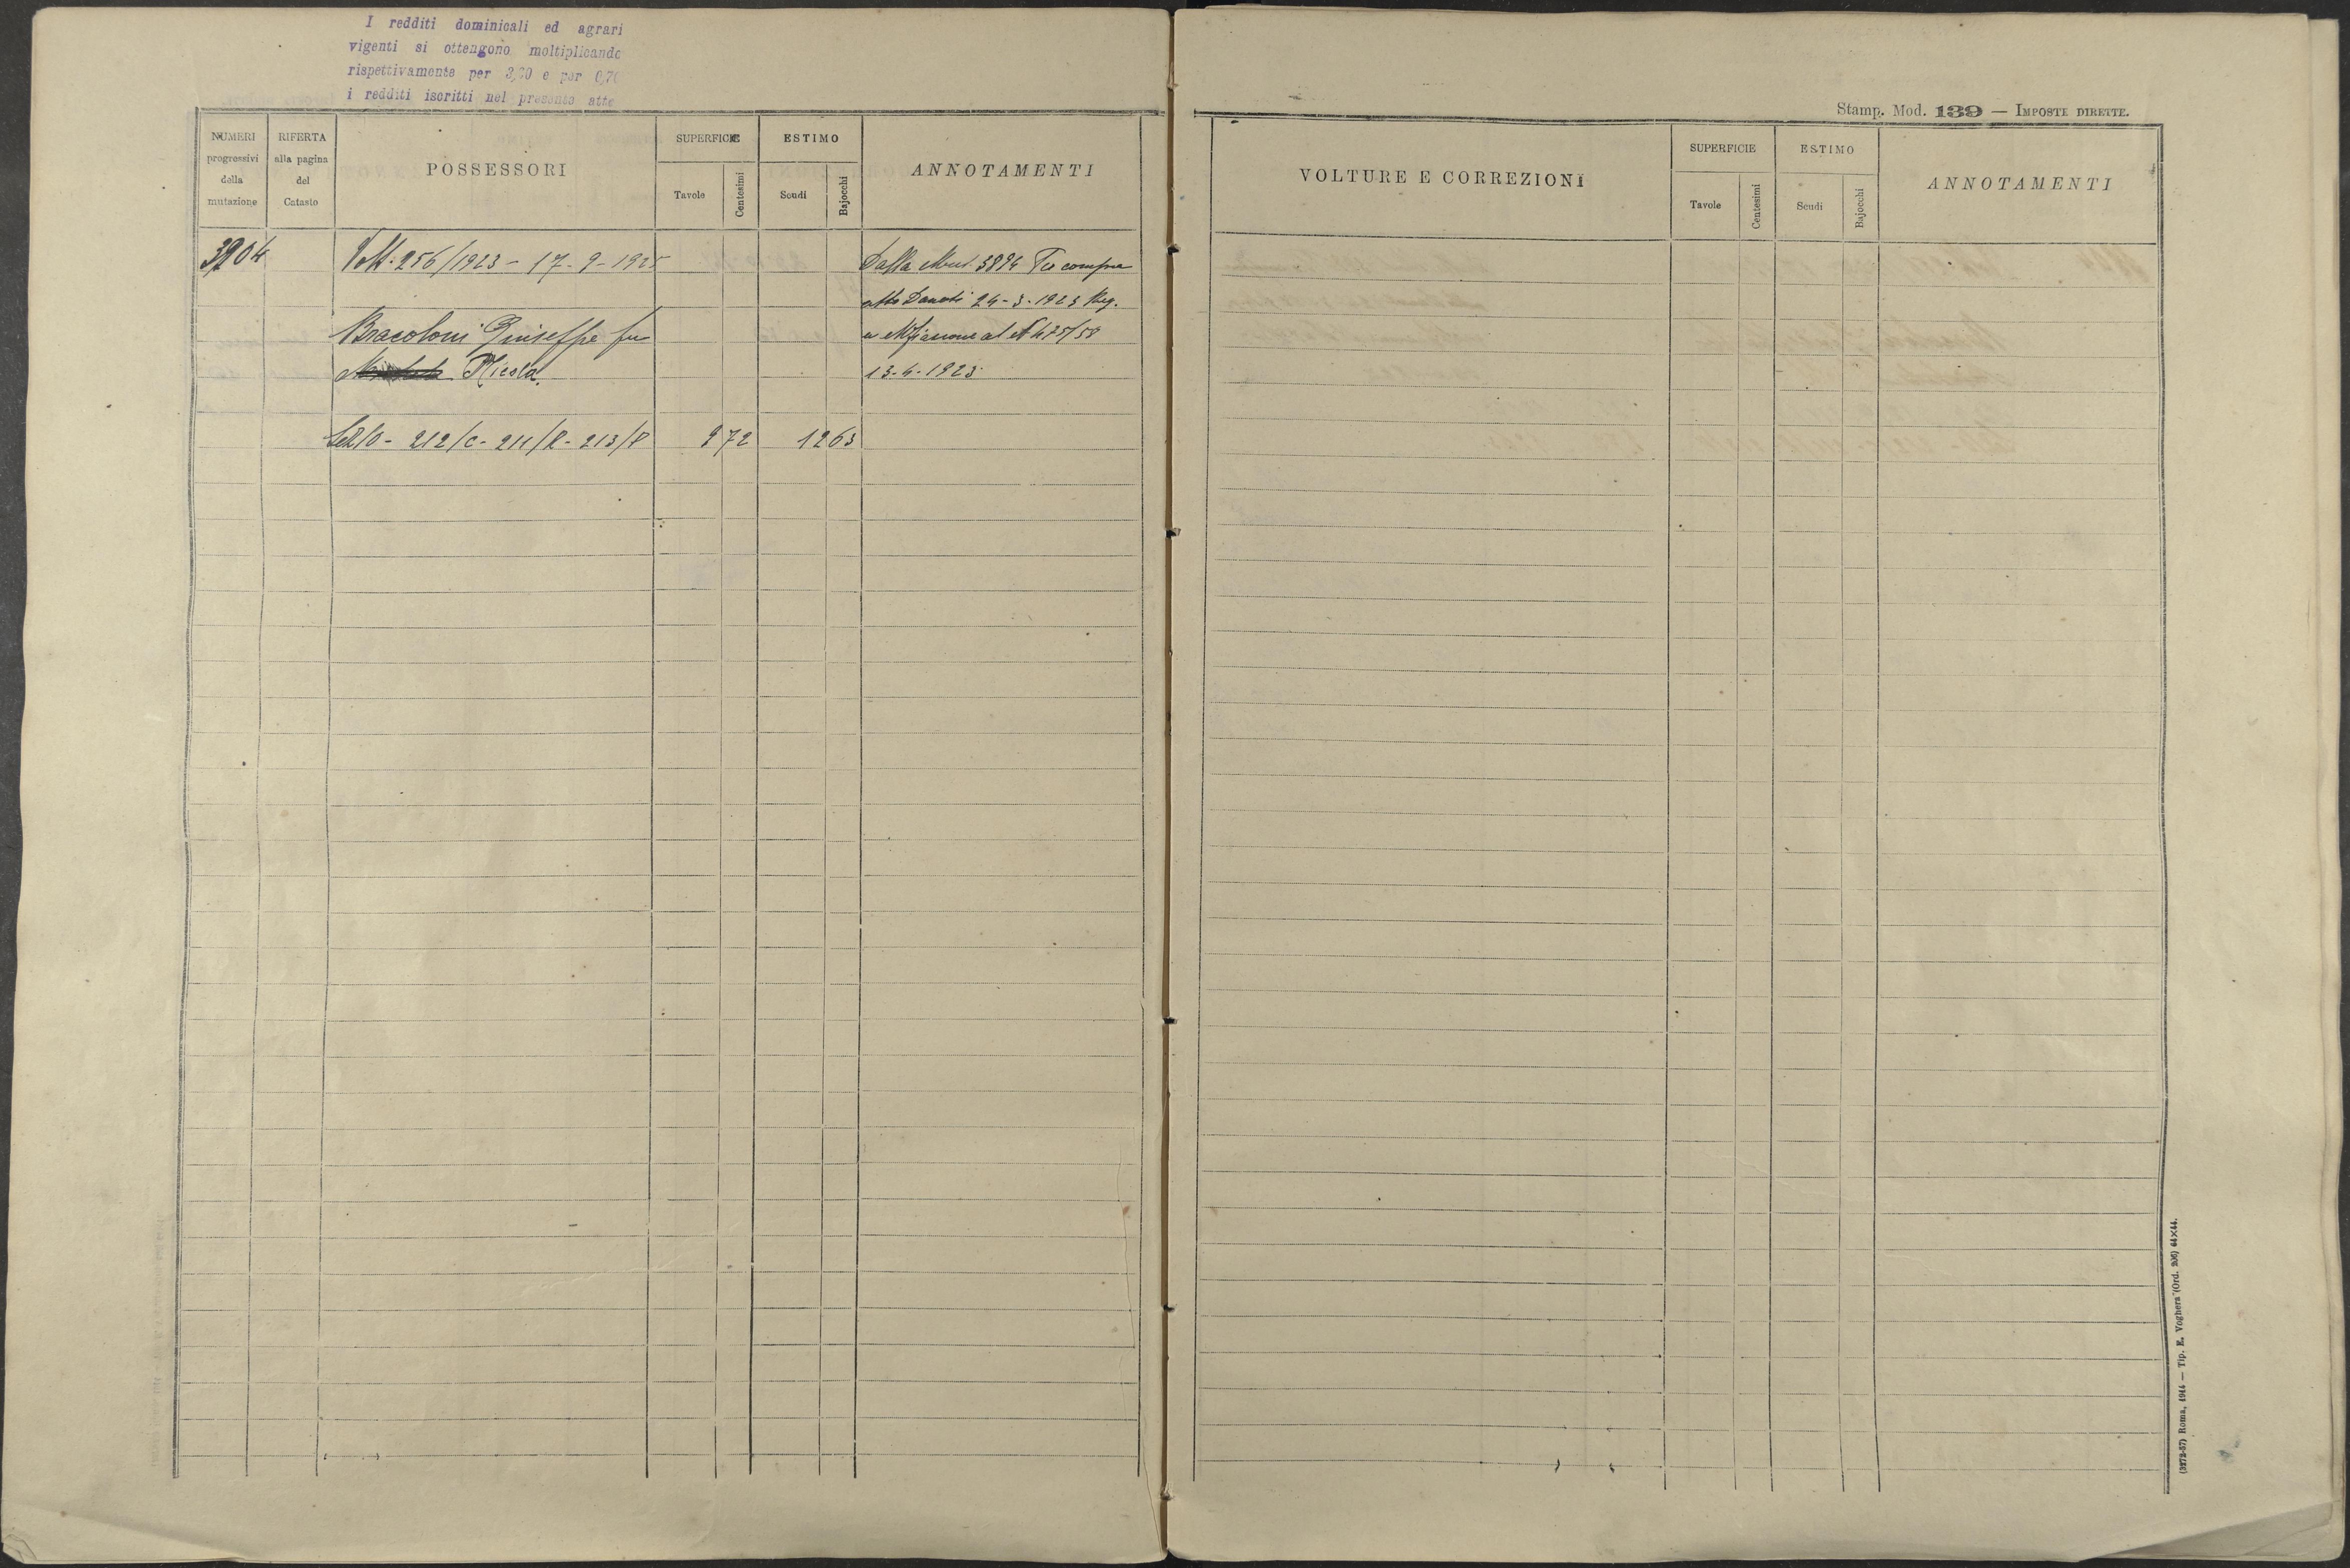 I redditi dominicali ed agrari
vigenti si ottengono moltiplicando
rispettivamente per 3,20 e per 0,70
i redditi iscritti nel presente atto
NUMERI
progressivi
della
mutazione
RIFERTA
alla pagina
del
Catasto
POSSESSORI
SUPERFICIE
Tavole
Centesimi
ESTIMO
Scudi
Bajocchi
ANNOTAMENTI
3904
Volt. 256/1923 - 17-9-1925
Dalla Mut. 3894 Per compra
atto Donati 24-3-1923 Reg.
Bracoloni Giuseppe fu
a al N 475/58
Nicola
13-4-1923
212/C - 211/R - 213/P
9 72
12 63
Stamp. Mod. 139 — IMPOSTE DIRETTE.
VOLTURE E CORREZIONI
SUPERFICIE
Tavole
Centesimi
ESTIMO
Scudi
Bajocchi
ANNOTAMENTI
(3272-57) Roma, 1914 — Tip. E. Voghera (Ord. 206) 64×44.